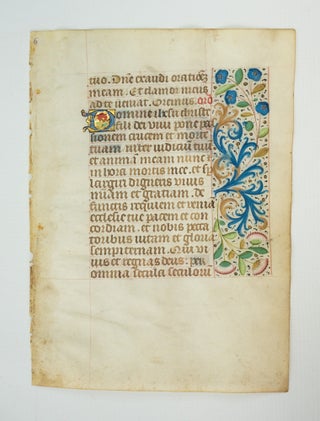 tuo. Dñe exaudi orationẽ
meam. Et clamor meus
ad te veniat. Oremus. oro
Domine ihesu christe
fili dei vivi pone pas
sionem crucem et morte
tuam inter iudiciũ tuũ
et animã meam nunc et
in hora mortis mee. et
largiri digneris vivis
miam et gratiam. de
functis requiem et venia
ecclesie tue pacem et con
cordiam. et nobis pecca
toribus vitam et gloriã
sempiternam. Qui vi
vis et regnas deus. per
omnia secula seculorũ